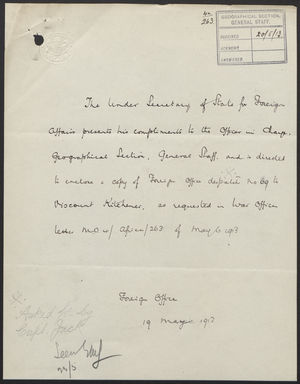 47
263
GEOGRAPHICAL SECTION,
GENERAL STAFF.
RECEIVED 20/5/13
ANSWERED
The Under Secretary of State for Foreign
Affairs presents his compliments to the Officer in Charge,
Geographical Section, General Staff, and is directed
to enclose a copy of Foreign Office despatch No 69 to
Viscount Kitchener, as requested in War Office
letter M.O. 4/ Africa/263 of May 6 1913
Foreign Office
19 May 1913
Asked for by
Capt. Jack
Seen